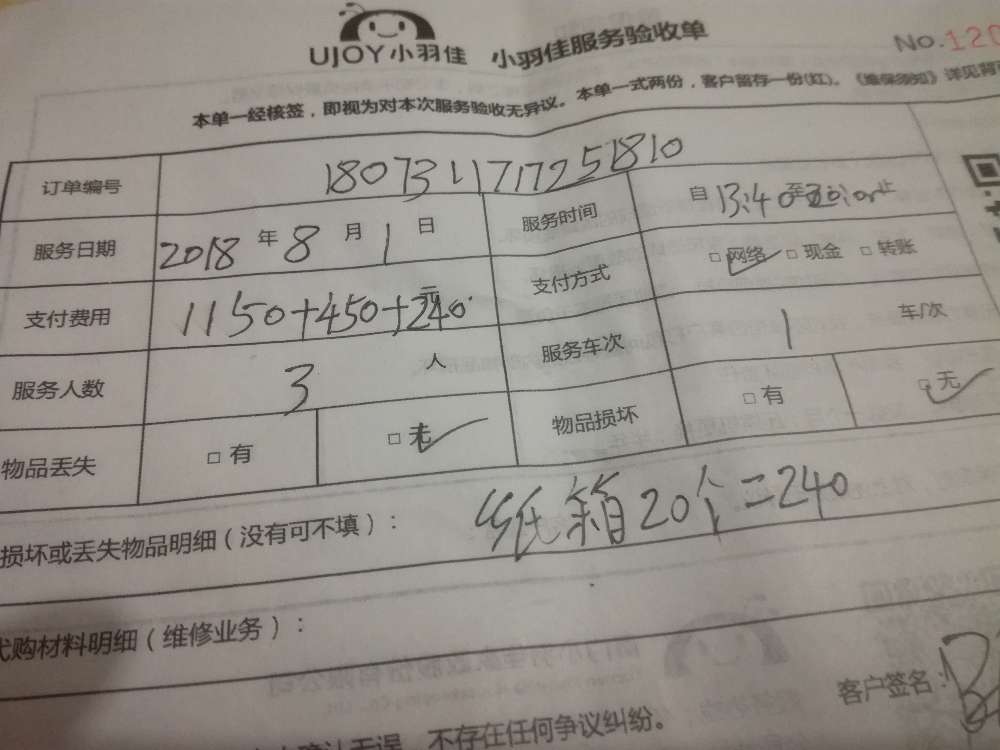 UJOY小羽佳 小羽佳服务验收单 No.120
本单一经核签，即视为对本次服务验收无异议。本单一式两份，客户留存一份(红)。《维保须知》详见背
订单编号 1807311717251810
服务日期 2018 年 8 月 1 日 服务时间 自 13:40 至 止
支付费用 1150+450+240 元 支付方式 □ 网络 □ 现金 □ 转账
服务人数 3 人 服务车次 1 车/次
物品丢失 □ 有 □ 无 物品损坏 □ 有 □ 无
损坏或丢失物品明细（没有可不填）： 纸箱20个=240
代购材料明细（维修业务）：
客户签名：
确认无误，不存在任何争议纠纷。